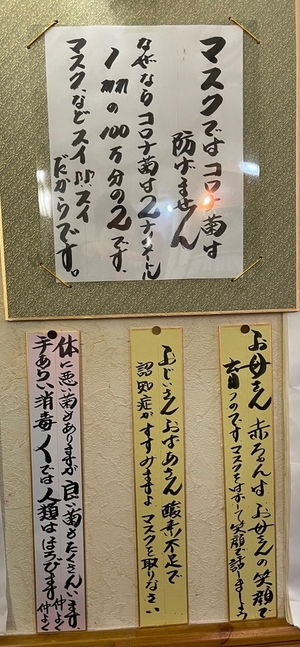 マスクではコロナ菌は
防げません
なぜならコロナ菌は2ナノミクロン
1mmの100万分の2です、
マスクなどスイスイ
だからです。
お母さん 赤ちゃんは お母さんの笑顔で
育つのです マスクをはずして笑顔で話しましょう
おじいさん おばあさん 酸素不足で
認知症が すすみますよ マスクを取りなさい
体に悪い菌もありますが 良い菌もたくさんいます 仲よく
手あらい消毒 〱では人類は ほろびます 仲よく